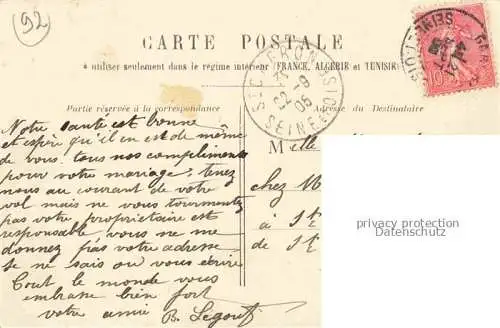 92
CARTE POSTALE
à utiliser seulement dans le régime intérieur (FRANCE, ALGÉRIE et TUNISIE)
Partie réservée à la correspondance
Adresse du Destinataire
Notre santé est bonne
et espère qu'il en est de même
de vous. tous nos compliments
pour votre mariage; tenez
nous au courant de votre
vol mais ne vous tourmentez
pas votre propriétaire est
responsable, vous ne me
donnez pas votre adresse
Je ne sais ou vous écrire
Tout le monde vous
embrasse bien fort
votre amie B.
Melle
chez M
à St
de St
privacy protection
Datenschutz
22 -9
05
SEINE-&-OISE
10